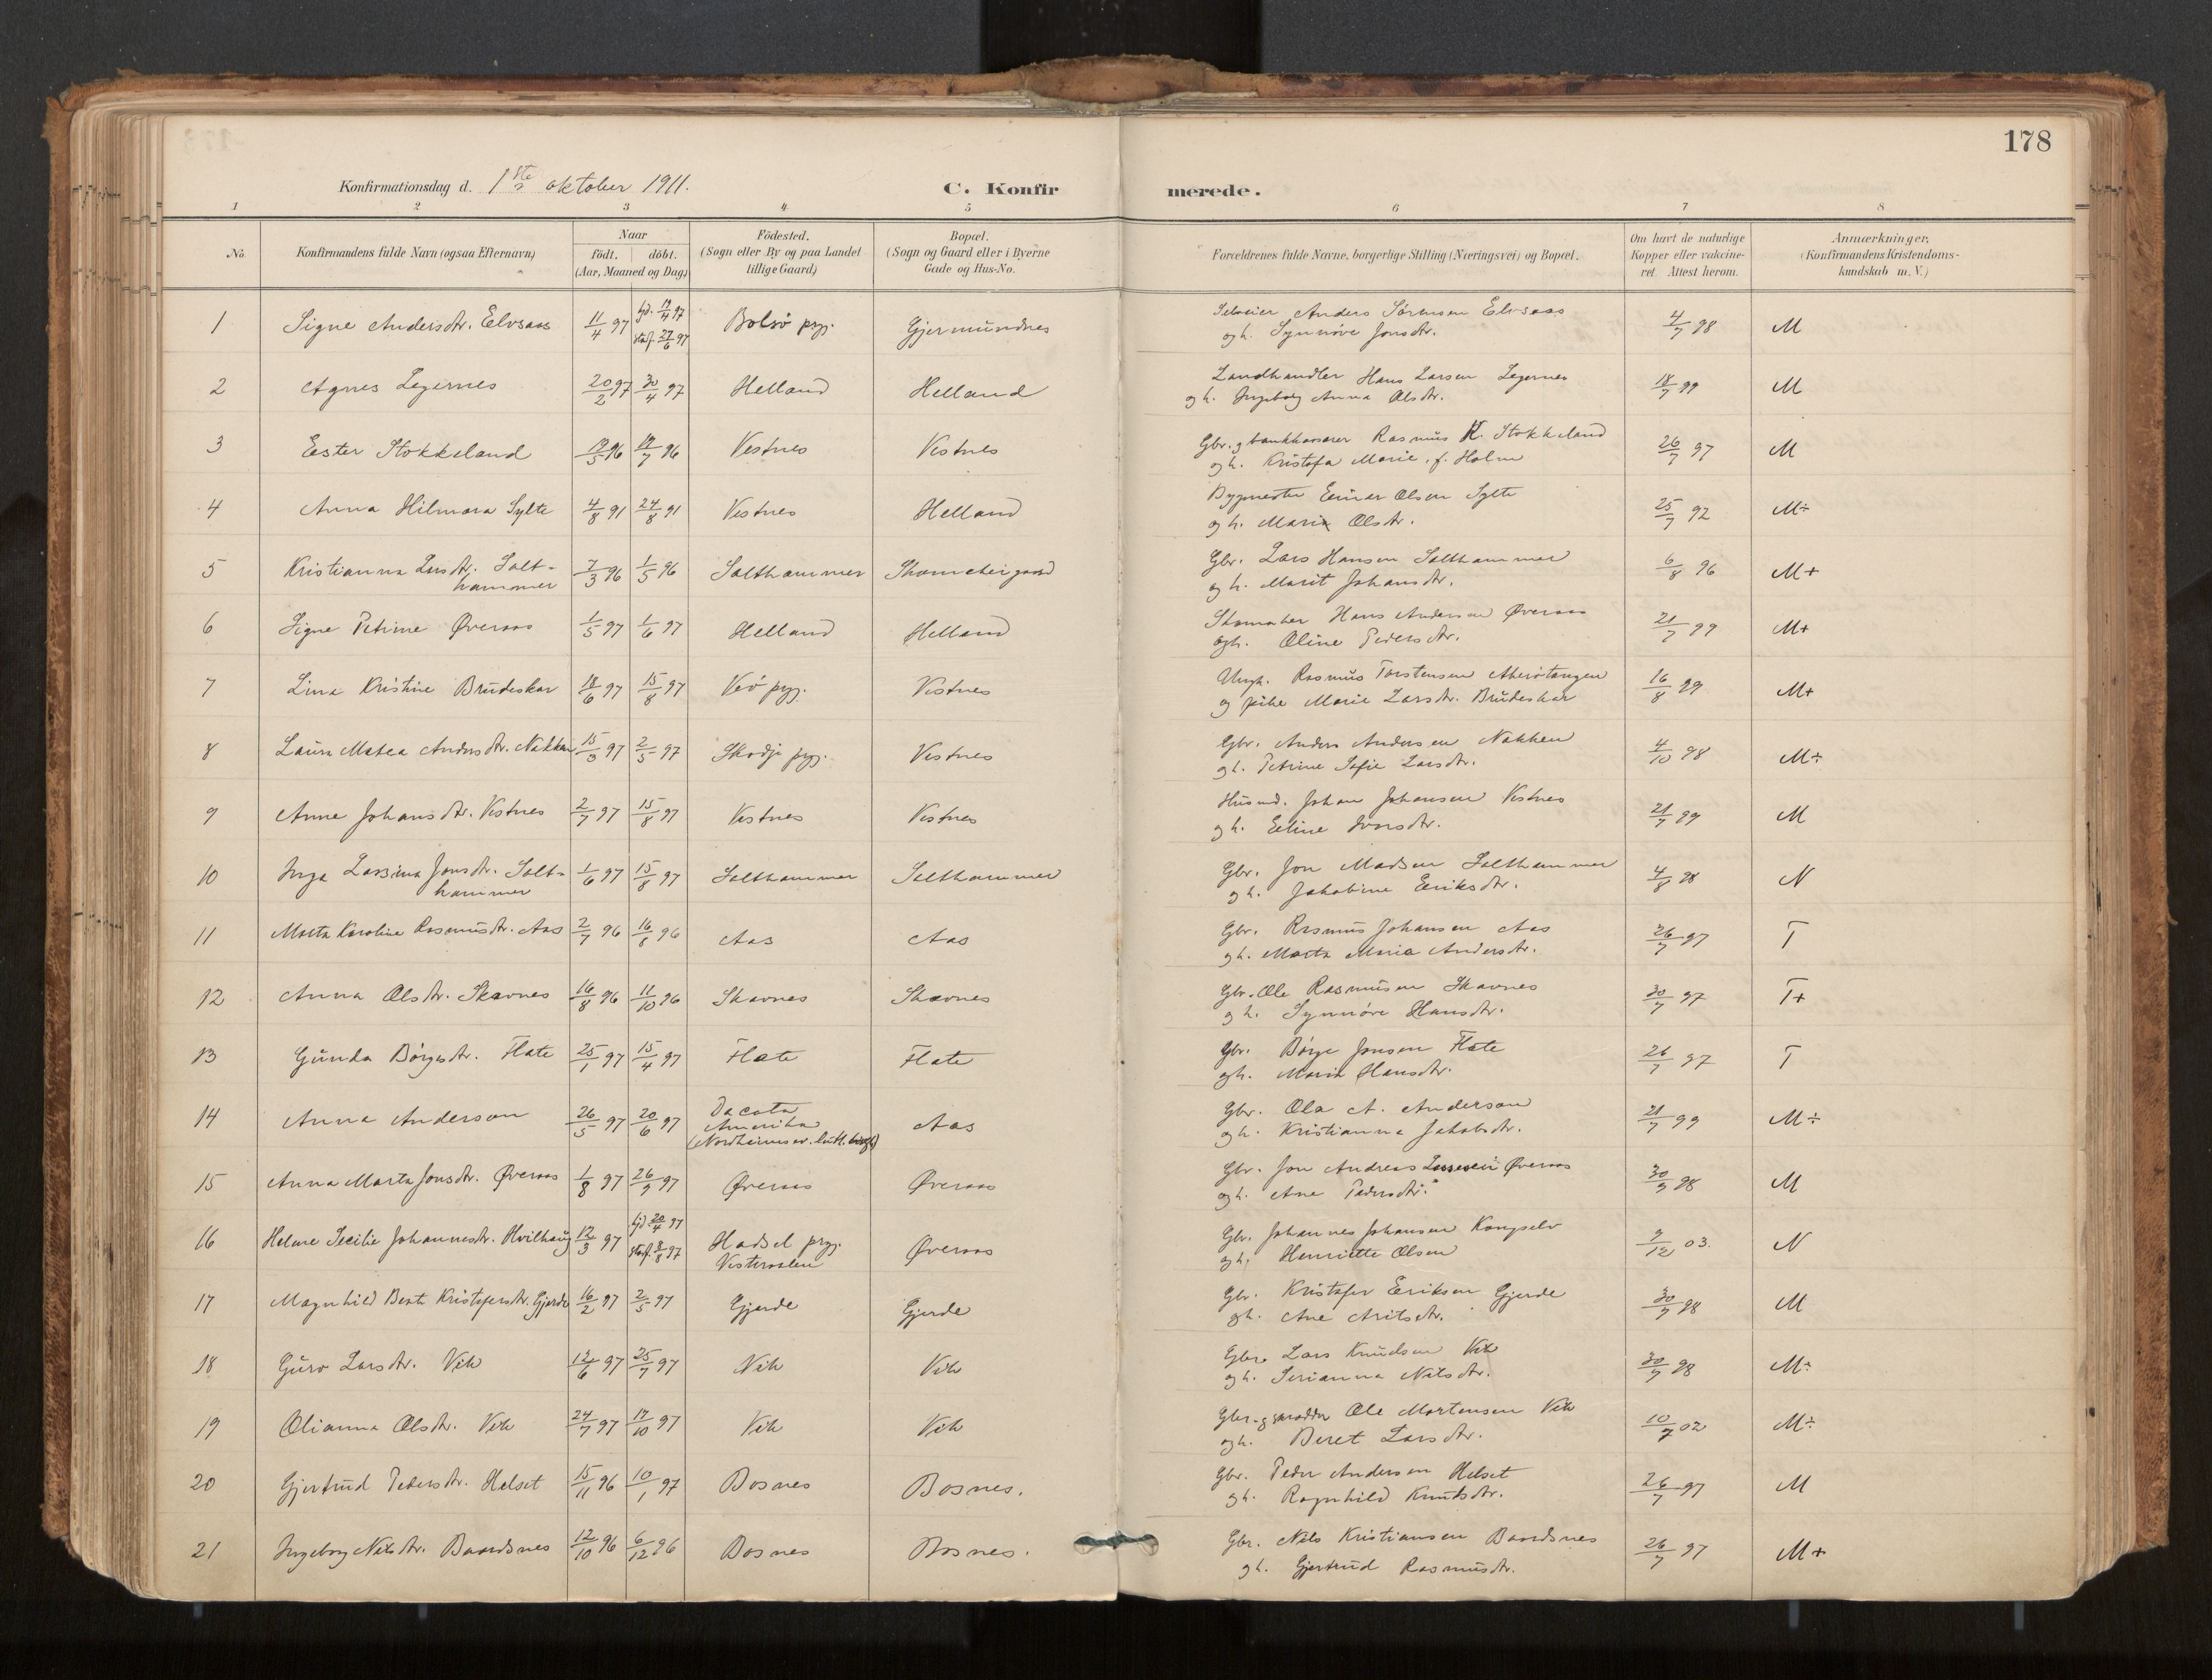 178
Konfirmationsdag d. 1ste oktober 1911.
C. Konfirmerede.
1 2 3 4 5 6 7 8
No.
Konfirmandens fulde Navn (ogsaa Efternavn)
Naar
födt. döbt.
(Aar, Maaned og Dag)
Födested.
(Sogn eller By og paa Landet
tillige Gaard)
Bopæl.
(Sogn og Gaard eller i Byerne
Gade og Hus-No.
Forældrenes fulde Navne, borgerlige Stilling (Næringsvei) og Bopæl.
Om havt de naturlige
Kopper eller vakcine-
ret. Attest herom.
Anmærkninger,
(Konfirmandens Kristendoms-
kundskab m. V.)
1 Signe Andersdtr. Elvsaas 11/4 97 hjd. 19/4 97 stadf. 27/6 97 Bolsö prgj. Gjermundnes Selveier Anders Sörensen Elvsaas 4/7 98 M
og h. Synnöve Jonsdtr.
2 Agnes Legernes 20/2 97 30/4 97 Helland Helland Landhandler Hans Larsen Legernes 18/7 99 M
og h. Ingeborg Anna Olsdtr.
3 Ester Stokkeland 19/5 96 19/7 96 Vestnes Vestnes Gbr. og bankkasserer Rasmus K. Stokkeland 26/7 97 M
og h. Kristofa Marie, f. Holm
4 Anna Hilmara Sylte 4/8 91 24/8 91 Vestnes Helland Bygmester Einar Olsen Sylte 25/7 92 M÷
og h. Marie Olsdtr.
5 Kristianna Larsdtr. Salt-
hammer 7/3 96 1/5 96 Salthammer Gbr. Lars Hansen Salthammer 6/8 96 M+
og h. Marit Johansdtr.
6 Signe Petrine Øveraas 1/5 97 1/6 97 Helland Helland Skomaker Hans Andersen Øveraas 21/7 99 M+
og h. Oline Pedersdtr.
7 Lina Kristine Brudeskar 18/6 97 15/8 97 Veö prgj. Vestnes Ungk. Rasmus Torstensen 16/8 99 M+
og pike Marie Larsdtr. Brudeskar
8 Laura Matea Andersdtr. Nakken 15/3 97 2/5 97 Skodje prgj. Vestnes Gbr. Anders Andersen Nakken 4/10 98 M÷
og h. Petrine Sofie Larsdtr.
9 Anne Johansdtr. Vestnes 2/7 97 15/8 97 Vestnes Vestnes Husmd. Johan Johansen Vestnes 21/7 99 M
og h. Eline Iversdtr.
10 Inga Lassina Jonsdtr. Salt-
hammer 1/6 97 15/8 97 Salthammer Salthammer Gbr. Jon Madsen Salthammer 4/8 98 N
og h. Jakobine Eriksdtr.
11 Marta Karoline Rasmusdtr. Aas 2/7 96 16/8 96 Aas Aas Gbr. Rasmus Johansen Aas 26/7 97 T
og h. Marta Maria Andersdtr.
12 Anna Olsdtr. Skavnes 16/8 96 11/10 96 Skavnes Skavnes Gbr. Ole Rasmusen Skavnes 30/7 97 T+
og h. Synnöve Hansdtr.
13 Gunda Börgesdtr. Flate 25/1 97 15/4 97 Flate Flate Gbr. Börge Jonsen Flate 26/7 97 T
og h. Marit Hansdtr.
14 Anna Anderson 26/5 97 20/6 97 Dacota
Amerika
(Nordheims ev. luth. kirge) Aas Gbr. Ola A. Anderson 21/7 99 M÷
og h. Kristianna Jakobsdtr.
15 Anna Marta Jonsdtr. Øveraas 1/8 97 26/9 97 Øveraas Øveraas Gbr. Jon Andreas Lassesen Øveraas 30/9 98 M
og h. Ane Pedersdtr.
16 Helene Secilie Johannesdtr. Hvilhaug 12/3 97 hjd. 20/4 97 stadf. 8/8 97 Hadsel prgj.
Vesteraalen Øveraas Gbr. Johannes Johansen Kongselv 9/12 03. N
og h. Henriette Olsen
17 Magnhild Berte Kristofersdtr. Gjerde 16/2 97 2/5 97 Gjerde Gjerde Gbr. Kristofer Eriksen Gjerde 30/9 98 M
og h. Ane
18 Guro Larsdtr. Vik 12/6 97 25/7 97 Vik Vik Gbr. Lars Knudsen Vik 30/9 98 M÷
og h. Serianna Nilsdtr.
19 Olianna Olsdtr. Vik 24/7 97 17/10 97 Vik Vik Gbr. og Ole Mortensen Vik 10/7 02 M÷
og h. Beret Larsdtr.
20 Gjertrud Pedersdtr. Helset 15/11 96 10/1 97 Bosnes Bosnes. Gbr. Peder Andersen Helset 26/7 97 M
og h. Ragnhild Knutsdtr.
21 Ingeborg Nilsdtr. Baardsnes 12/10 96 6/12 96 Bosnes Bosnes. Gbr. Nils Kristiansen Baardsnes 26/7 97 M+
og h. Gjertrud Rasmusdtr.